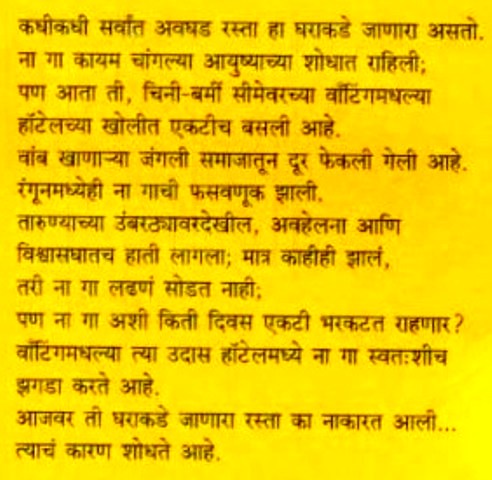 कधीकधी सर्वांत अवघड रस्ता हा घराकडे जाणारा असतो.
ना गा कायम चांगल्या आयुष्याच्या शोधात राहिली;
पण आता ती, चिनी-बर्मी सीमेवरच्या वॉटिंगमधल्या
हॉटेलच्या खोलीत एकटीच बसली आहे.
वांब खाणाऱ्या जंगली समाजातून दूर फेकली गेली आहे.
रंगूनमध्येही ना गाची फसवणूक झाली.
तारुण्याच्या उंबरठ्यावरदेखील, अवहेलना आणि
विश्वासघातच हाती लागला; मात्र काहीही झालं,
तरी ना गा लढणं सोडत नाही;
पण ना गा अशी किती दिवस एकटी भरकटत राहणार?
वॉटिंगमधल्या त्या उदास हॉटेलमध्ये ना गा स्वतःशीच
झगडा करते आहे.
आजवर ती घराकडे जाणारा रस्ता का नाकारत आली...
त्याचं कारण शोधते आहे.